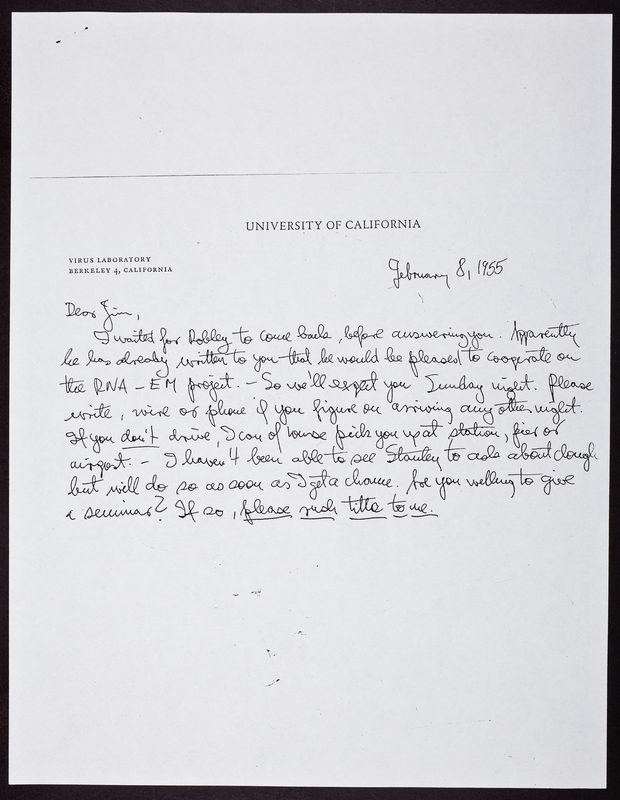 UNIVERSITY OF CALIFORNIA
VIRUS LABORATORY
BERKELEY 4, CALIFORNIA
February 8, 1955
Dear Jim,
I waited for Robley to come back, before answering you. Apparently
he has already written to you that he would be pleased to cooperate on
the RNA - EM project. - So we'll expect you Sunday night. Please
write, wire or phone if you figure on arriving any other night.
If you don't drive, I can of course pick you up at station, pier or
airport. - I haven't been able to see Stanley to ask about dough
but will do so as soon as I get a chance. Are you willing to give
a seminar? If so, please rush title to me.